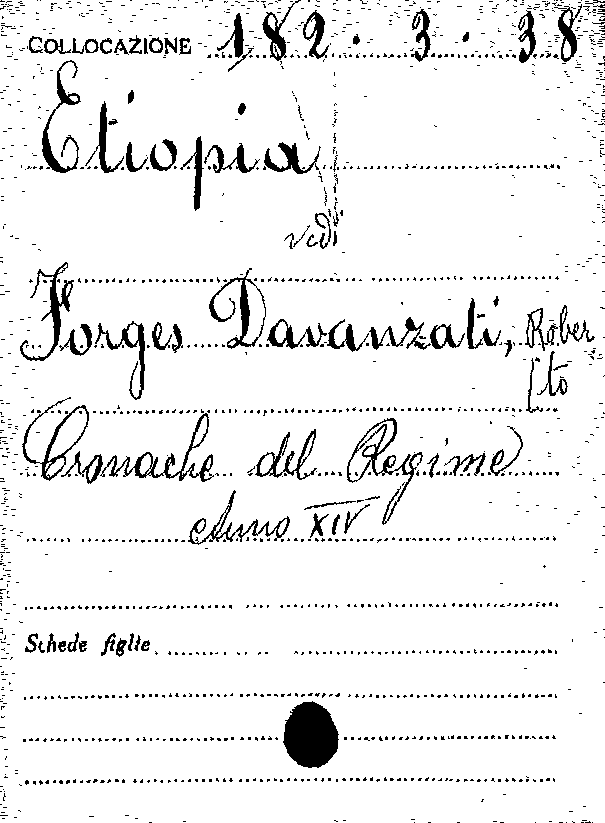 COLLOCAZIONE 182 · 3 · 38
Etiopia
vedi
Forges Davanzati, Rober
[to
Cronache del Regime
Anno XIV
Schede figlie